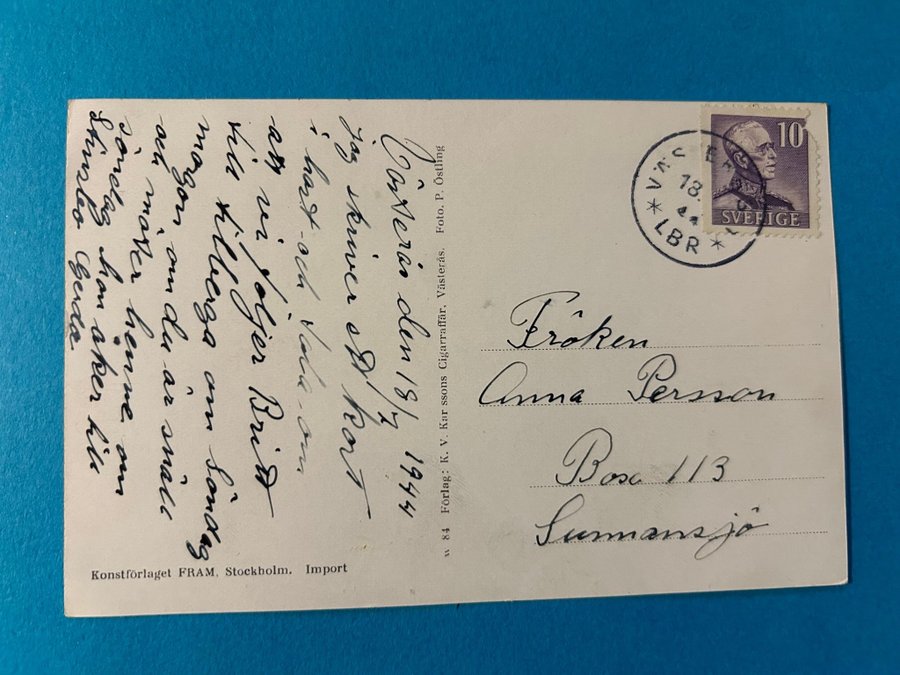 Västerås den 18/7 1944
Jag skriver ett kort
i hast och tala om
att vi följer Britt
till Tillberga om Söndag
morgon om du är snäll
och möter henne om
söndag hon åker till
Gerda
w 84 Förlag: K. V. Kar ssons Cigarraffär, Västerås. Foto. P. Östling
Konstförlaget FRAM, Stockholm. Import
10
SVERIGE
VÄSTERÅS
18.
44
LBR
Fröken
Anna Persson
Box 113
Sunnansjö